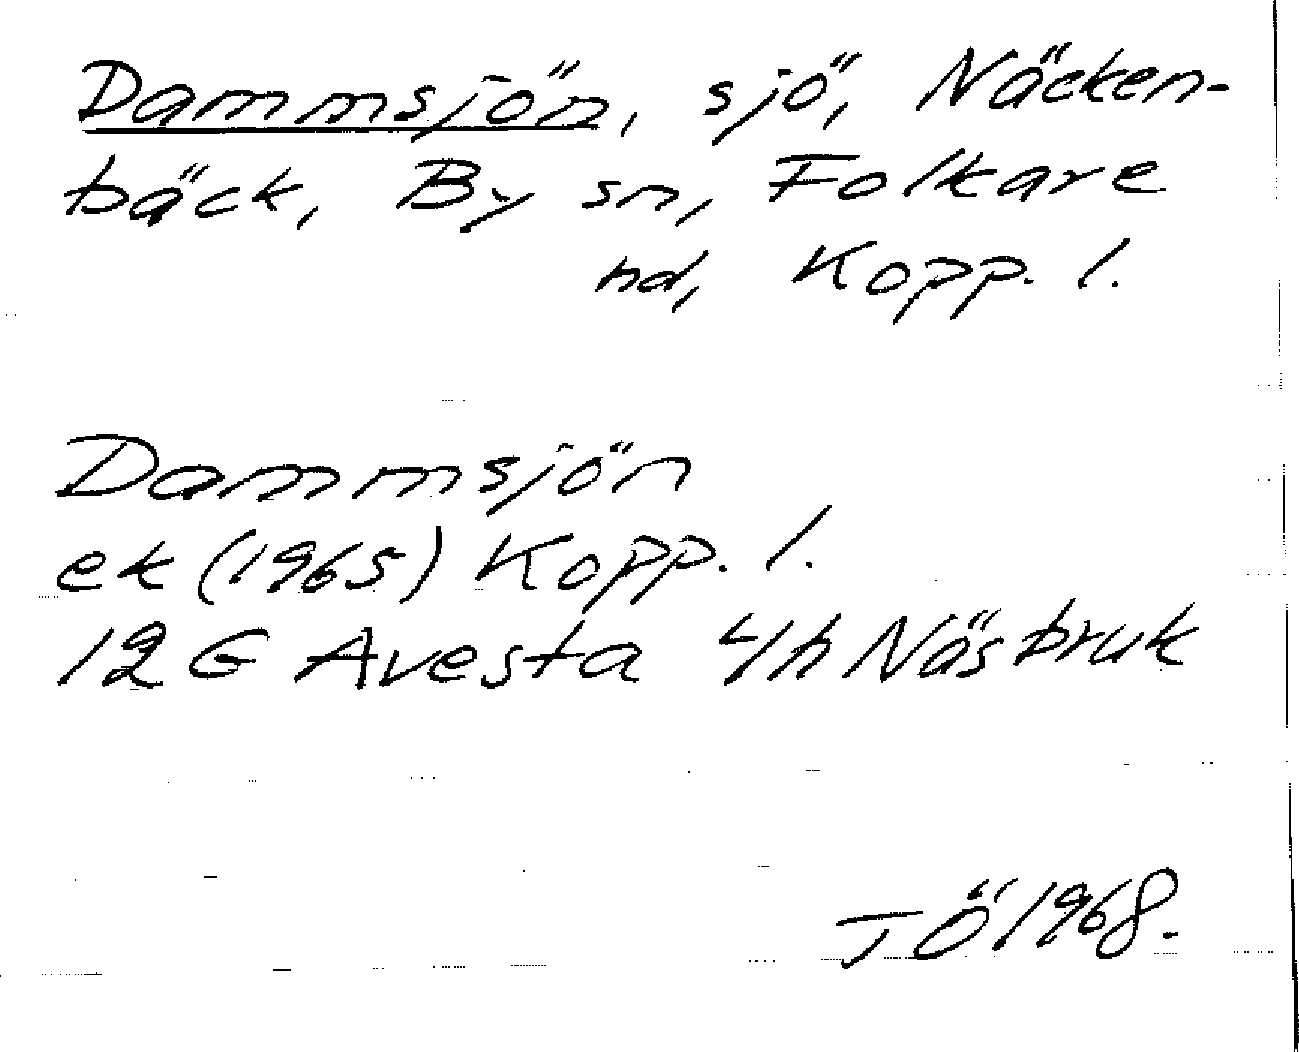 Dammsjön, sjö, Näcken-
bäck, By sn, Folkare
hd, Kopp. l.
Dammsjön
ek (1965) Kopp. l.
12 G Avesta 4h Näsbruk
JÖ 1968.